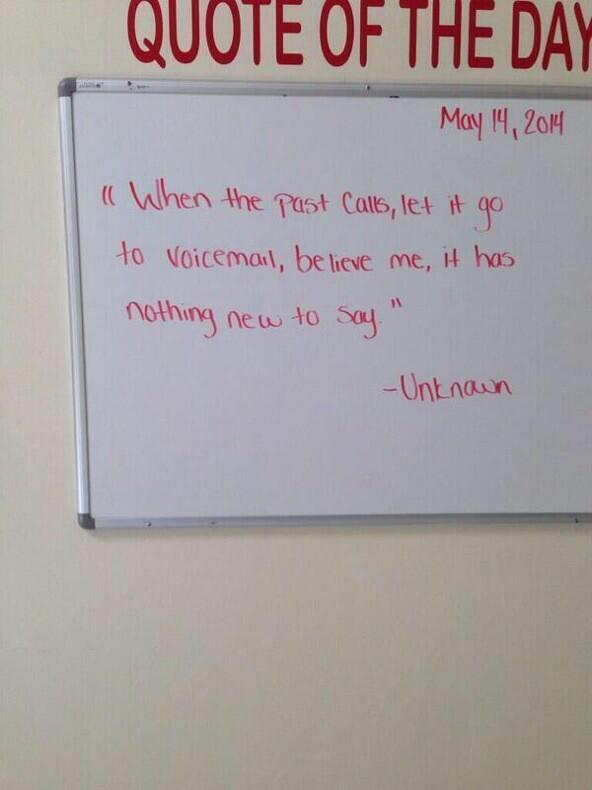 QUOTE OF THE DAY
May 14, 2014
"When the past calls, let it go
to voicemail, believe me, it has
nothing new to say."
-Unknown